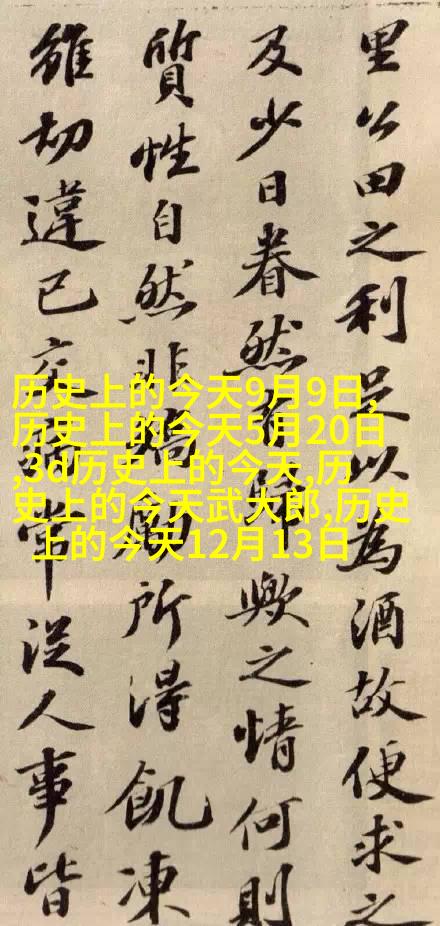 里公田之利足以為酒故便求之
及少日眷然有歸歟之情何則
質性自然非矯勵所得飢凍
雖切違已交病常從人事皆
历史上的今天9月9日,
历史上的今天5月20日
,3d历史上的今天,历
史上的今天武大郎,历史
上的今天12月13日